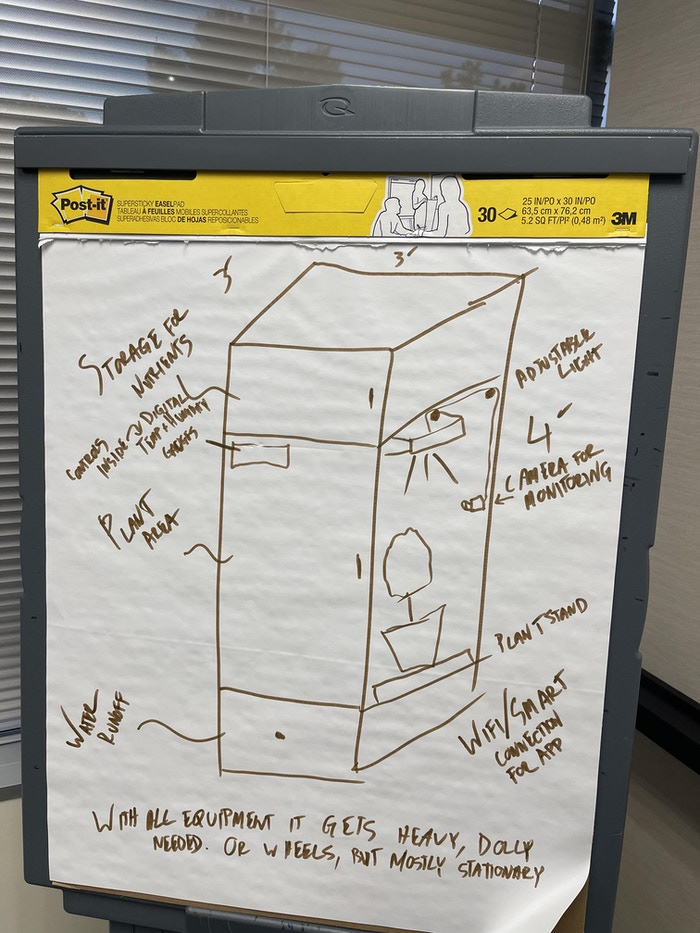 Post-it
SUPERSTICKY EASEL PAD
TABLEAU À FEUILLES MOBILES SUPERCOLLANTES
SUPERADHESIVAS BLOC DE HOJAS REPOSICIONABLES
30
25 IN/PO x 30 IN/PO
63,5 cm x 76,2 cm
5.2 SQ FT/PI² (0,48 m²)
3M
3'
3'
STORAGE FOR
NUTRIENTS
CONTROLS
INSIDE
DIGITAL
TEMP & HUMIDITY
GAUGES
PLANT
AREA
WATER
RUNOFF
ADJUSTABLE
LIGHT
4'
CAMERA FOR
MONITORING
PLANT STAND
WIFI/SMART
CONNECTION
FOR APP
WITH ALL EQUIPMENT IT GETS HEAVY, DOLLY
NEEDED. OR WHEELS, BUT MOSTLY STATIONARY